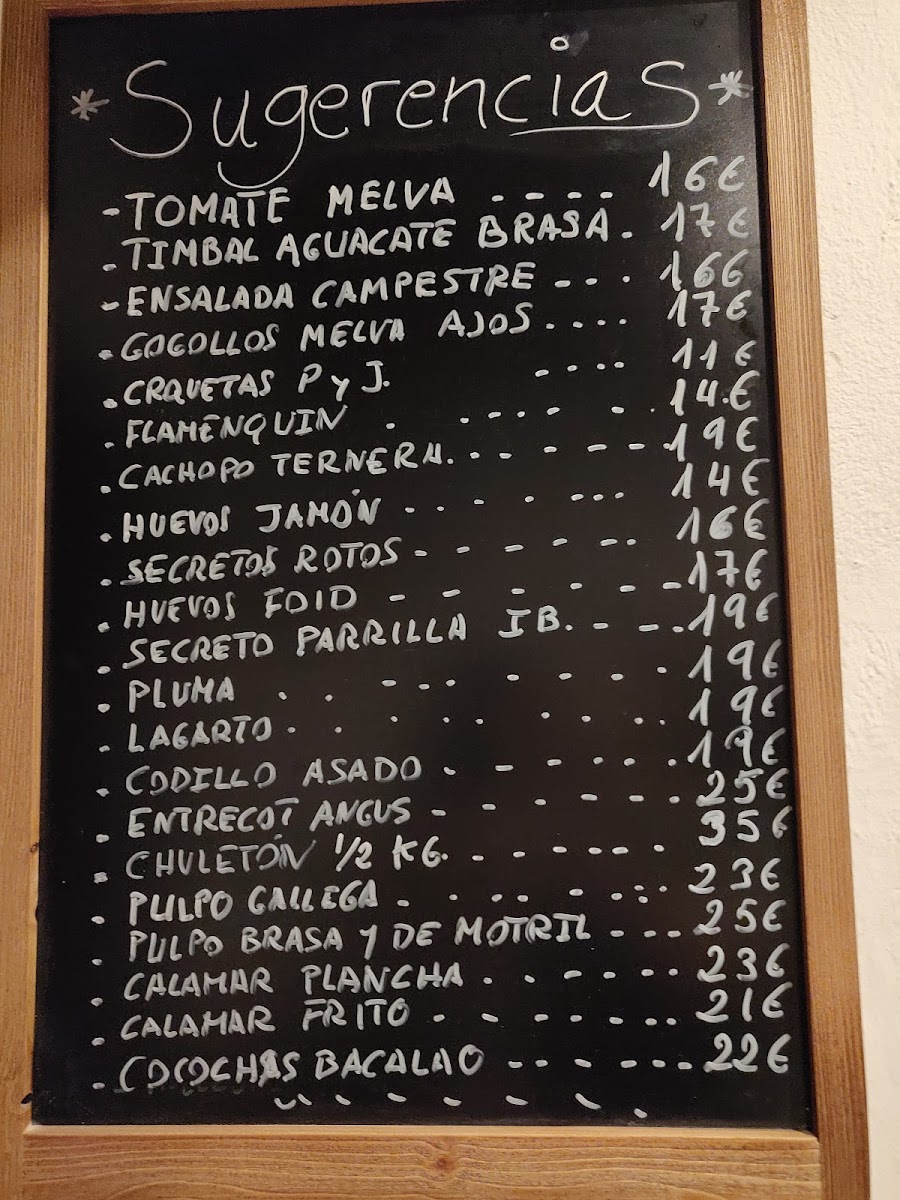 * Sugerencias *
- TOMATE MELVA .... 16€
. TIMBAL AGUACATE BRASA . 17€
- ENSALADA CAMPESTRE --- . 16€
. COGOLLOS MELVA AJOS .... 17€
. CRQUETAS P y J. .... 11€
. FLAMENQUIN . .... - . 14.€
. CACHOPO TERNERA. .. - - - - - 19€
. HUEVOS JAMÓN .. - . ... 14€
. SECRETOS ROTOS - - - - .. 16€
. HUEVOS FOID - - - - - - - 17€
. SECRETO PARRILLA IB. - - . 19€
. PLUMA . . - .. - - - . 19€
. LAGARTO . . . .. . . .. . 19€
. CODILLO ASADO . - - - - . . 19€
. ENTRECOT ANGUS - - - - - .. 25€
. CHULETÓN 1/2 KG. - . - - - - 35€
. PULPO GALLEGA . . .. - .... 23€
. PULPO BRASA Y DE MOTRIL - - - 25€
. CALAMAR PLANCHA . . - - - - .. 23€
. CALAMAR FRITO - . - - - .. 21€
. COCOCHAS BACALAO -- . - ... 22€